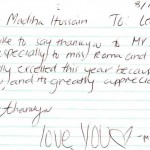 8/1
Madiha Hussain To: Le
like to say thankyou to Mr
especially to miss Rama and
lly excelled this year because
, and its greatly apprecia
thankyou
love, you